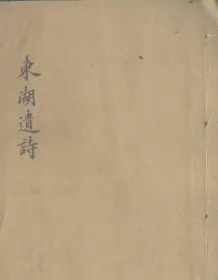 東湖遺詩